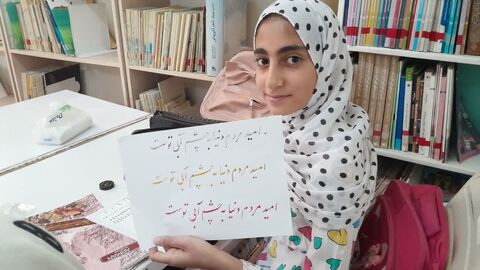 امید مردم دنیا به چشم آبی توست
امید مردم دنیا به چشم آبی توست
امید مردم دنیا به چشم آبی توست